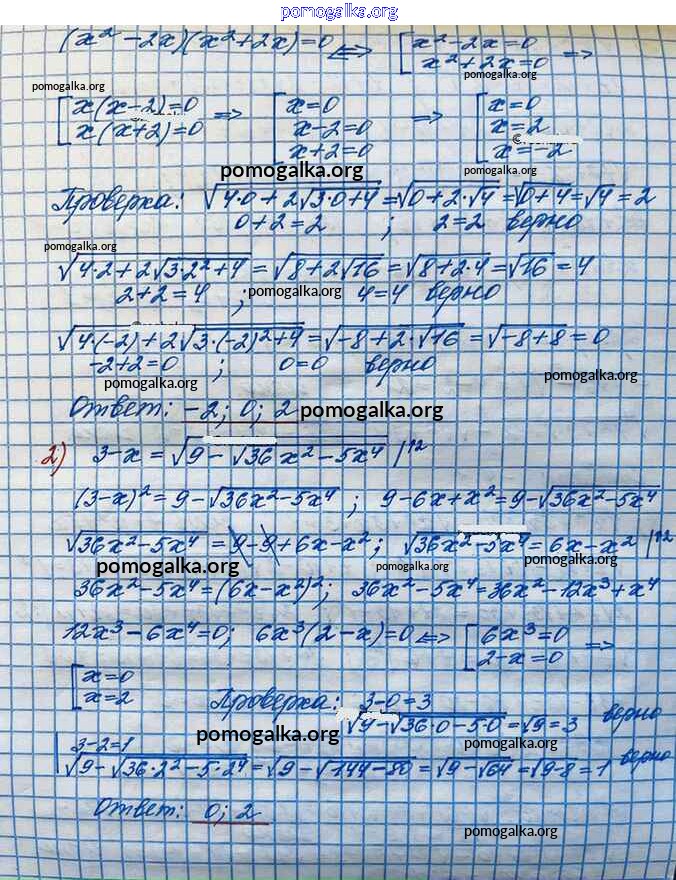 pomogalka.org
(x² – 2x)(x² + 2x) = 0 <=> [x² – 2x = 0
x² + 2x = 0 =>
pomogalka.org
pomogalka.org
[x(x – 2) = 0
x(x + 2) = 0 => [x = 0
x – 2 = 0
x + 2 = 0 => [x = 0
x = 2
x = –2
pomogalka.org
pomogalka.org
Проверка: √(4·0 + 2√(3·0 + 4)) = √(0 + 2·√4) = √(0 + 4) = √4 = 2
0 + 2 = 2 ; 2 = 2 верно
pomogalka.org
√(4·2 + 2√(3·2² + 4)) = √(8 + 2√16) = √(8 + 2·4) = √16 = 4
2 + 2 = 4 ; pomogalka.org 4 = 4 верно
√(4·(–2) + 2√(3·(–2)² + 4)) = √(–8 + 2·√16) = √(–8 + 8) = 0
–2 + 2 = 0 ; 0 = 0 верно
pomogalka.org pomogalka.org
Ответ: –2; 0; 2 pomogalka.org
2) 3 – x = √(9 – √(36x² – 5x⁴)) |↑2
(3 – x)² = 9 – √(36x² – 5x⁴) ; 9 – 6x + x² = 9 – √(36x² – 5x⁴)
√(36x² – 5x⁴) = 9 – 9 + 6x – x² ; √(36x² – 5x⁴) = 6x – x² |↑2
pomogalka.org pomogalka.org
36x² – 5x⁴ = (6x – x²)² ; 36x² – 5x⁴ = 36x² – 12x³ + x⁴
12x³ – 6x⁴ = 0 ; 6x³(2 – x) = 0 <=> [6x³ = 0
2 – x = 0 =>
[x = 0
x = 2
Проверка: 3 – 0 = 3
√(9 – √(36·0 – 5·0)) = √9 = 3 | верно
pomogalka.org pomogalka.org
3 – 2 = 1
√(9 – √(36·2² – 5·2⁴)) = √(9 – √(144 – 80)) = √(9 – √64) = √(9 – 8) = 1 верно
Ответ: 0; 2
pomogalka.org